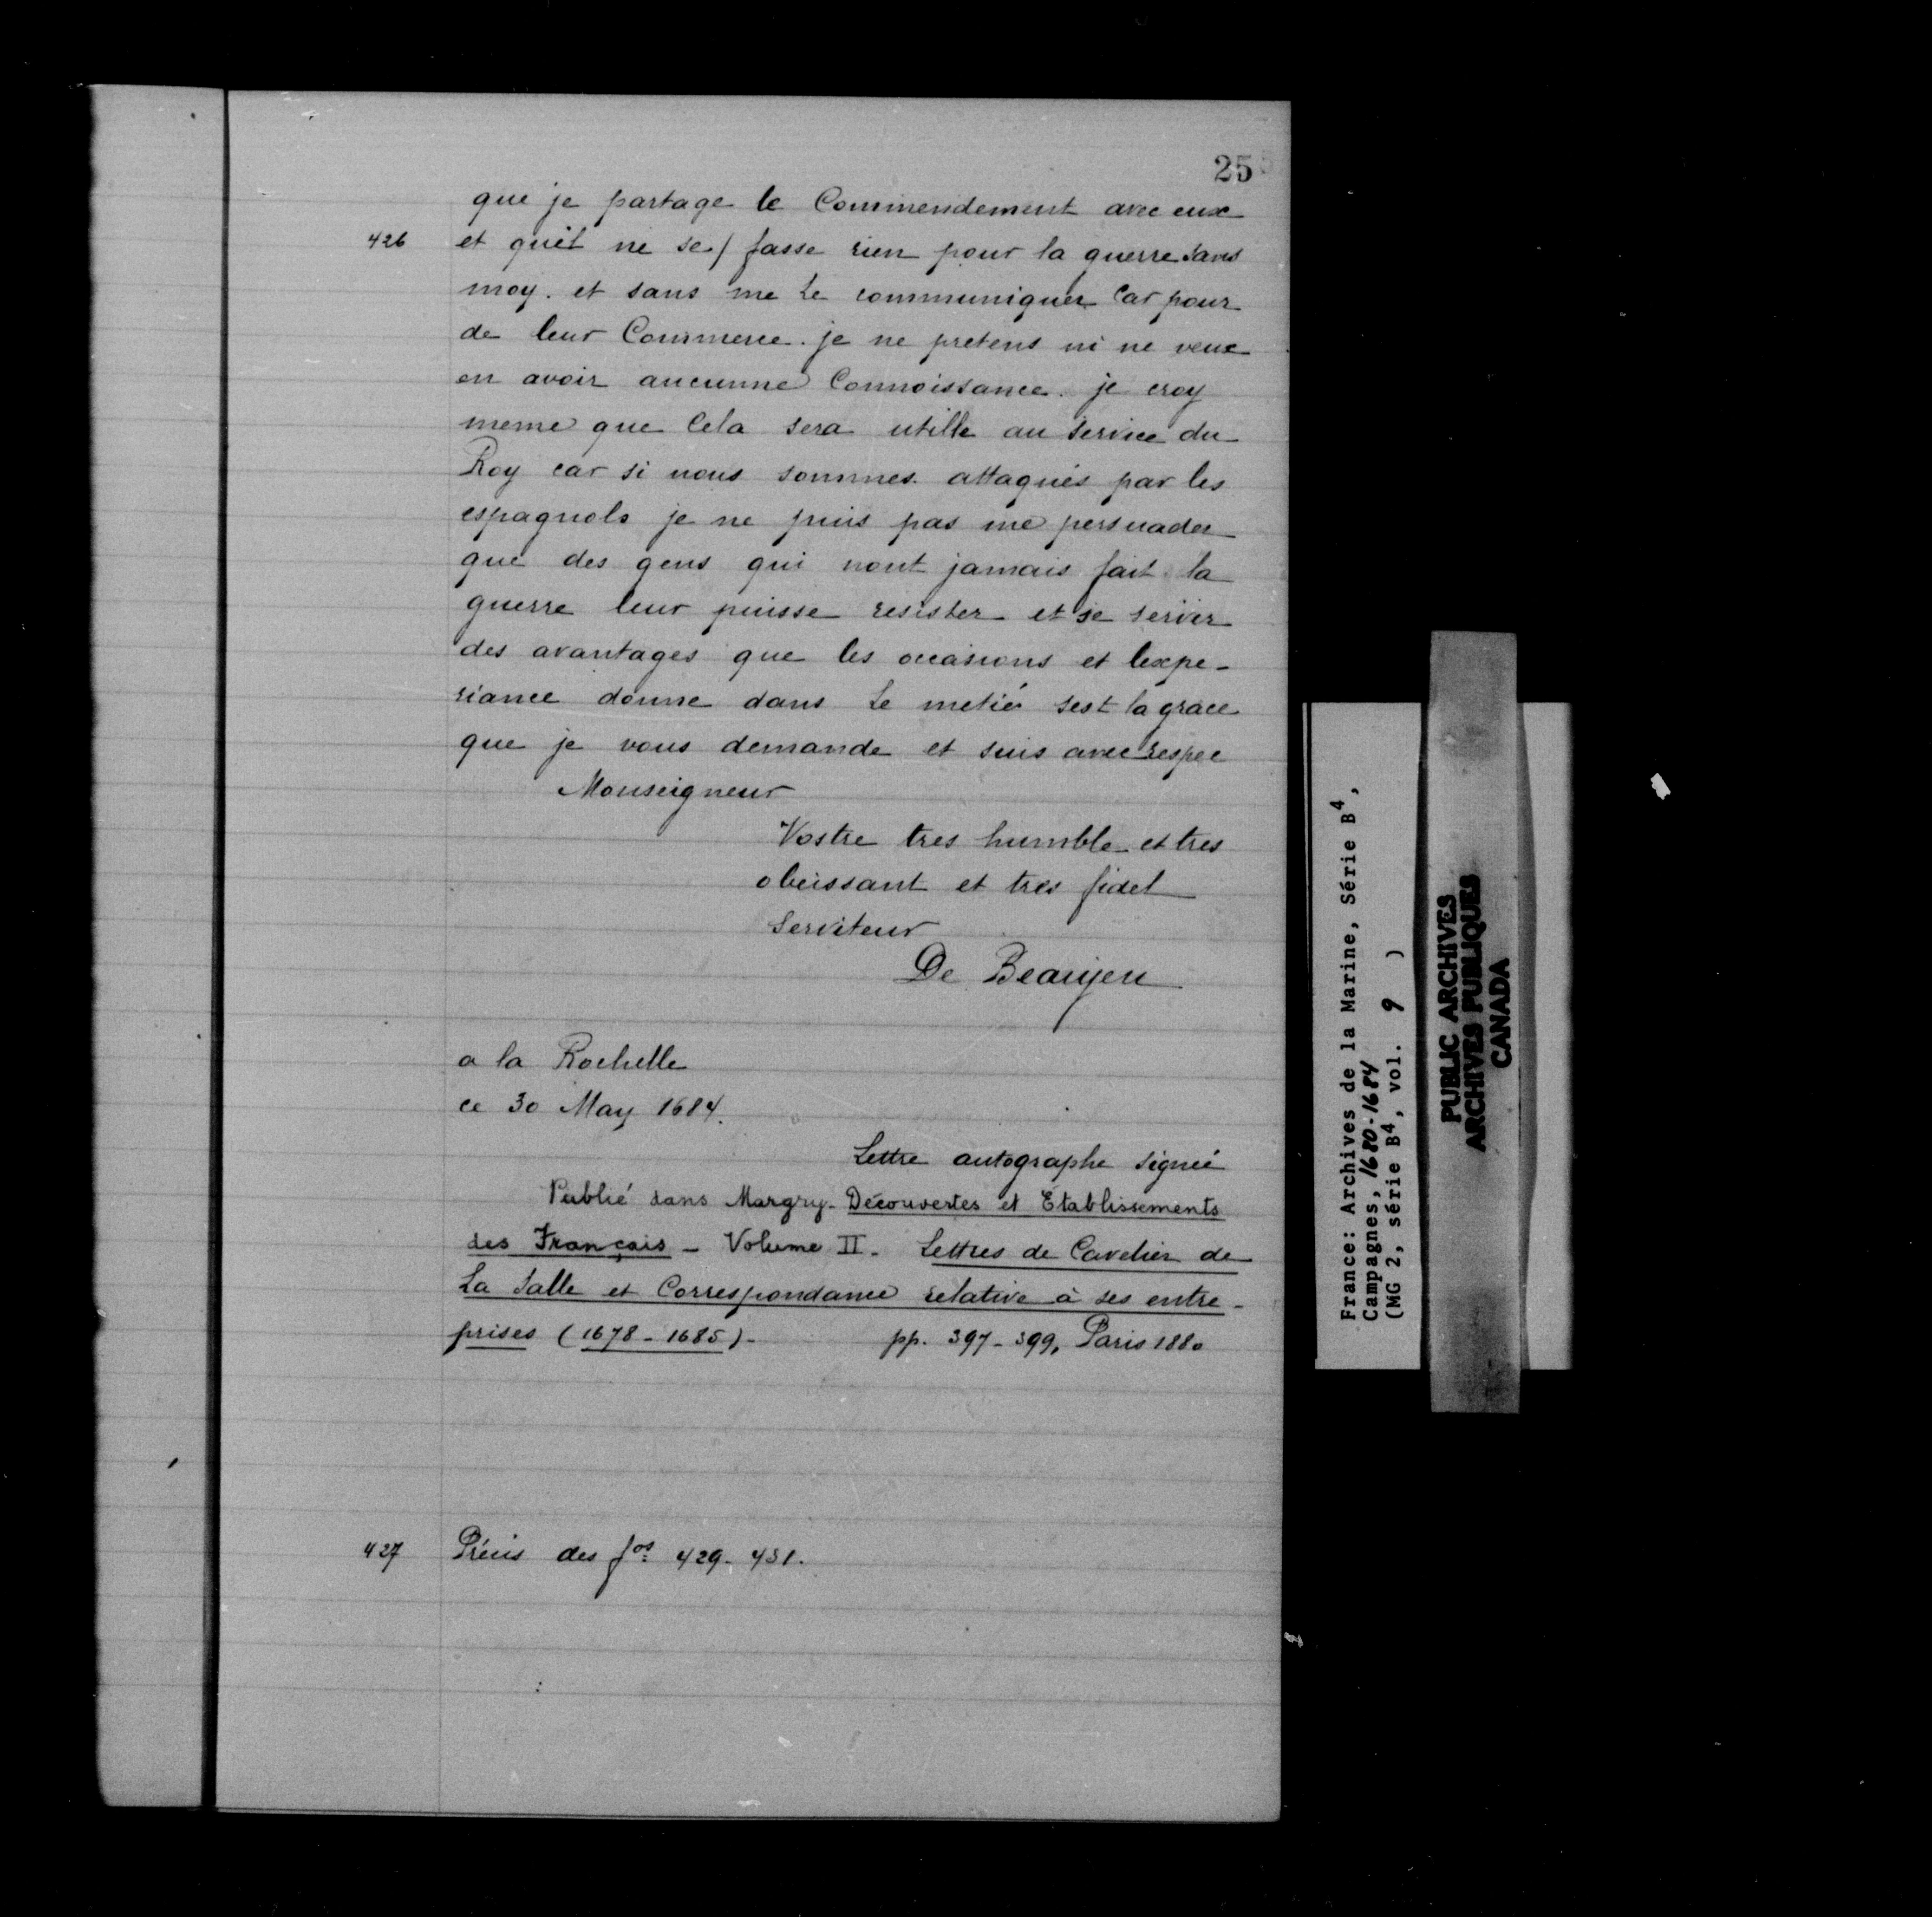 25
que je partage le Commendement avec eux
426 et quil ne se / fasse rien pour la guerre sans
moy. et sans me Le communiquer Car pour
de leur Commerce. je ne pretens ni ne veux
en avoir aucunne Connoissance. je croy
meme que Cela sera utille au Service du
Roy car si nous sommes attaqués par les
espagnols je ne puis pas me persuader
que des gens qui nont jamais fait la
guerre leur puisse resister et se servir
des avantages que les occasions et lexpe-
riance donne dans Le metiér sest la grace
que je vous demande et suis avec respec
Monseigneur
Vostre tres humble et tres
obeissant et tres fidel
Serviteur
De Beaujeu
a la Rochelle
ce 30 May 1684.
Lettre autographe signée
Publié dans Margry - Découvertes et Établissements
des Français - Volume II - Lettres de Cavelier de
La Salle et Correspondance relative à ses entre-
prises (1678-1685) - pp. 397-399, Paris 1880
427 Précis des fos 429-431.
France: Archives de la Marine, Série B4,
Campagnes, 1680-1684
(MG 2, série B4, vol. 9 )
PUBLIC ARCHIVES
ARCHIVES PUBLIQUES
CANADA